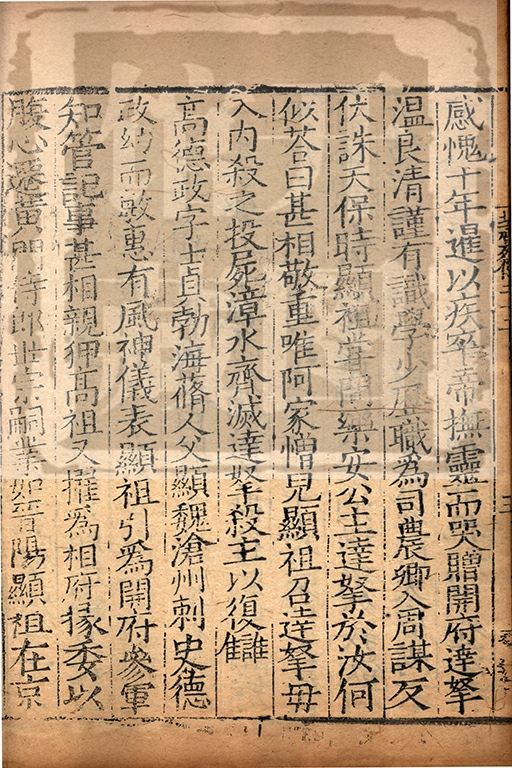 感愧十年暹以疾卒帝撫靈而哭贈開府達拏
温良清謹有識學少歷職為司農卿入周謀反
伏誅天保時顯祖嘗問樂安公主達拏於汝何
似荅曰甚相敬重唯阿家憎兒顯祖召達拏母
入内殺之投屍漳水齊滅達拏殺主以復讎
高德政字士貞勃海蓨人父顥魏滄州刺史德
政幼而敏惠有風神儀表顯祖引為開府參軍
知管記事甚相親狎高祖又擢為相府掾委以
腹心遷黄門侍郎世宗嗣業如晉陽顯祖在京